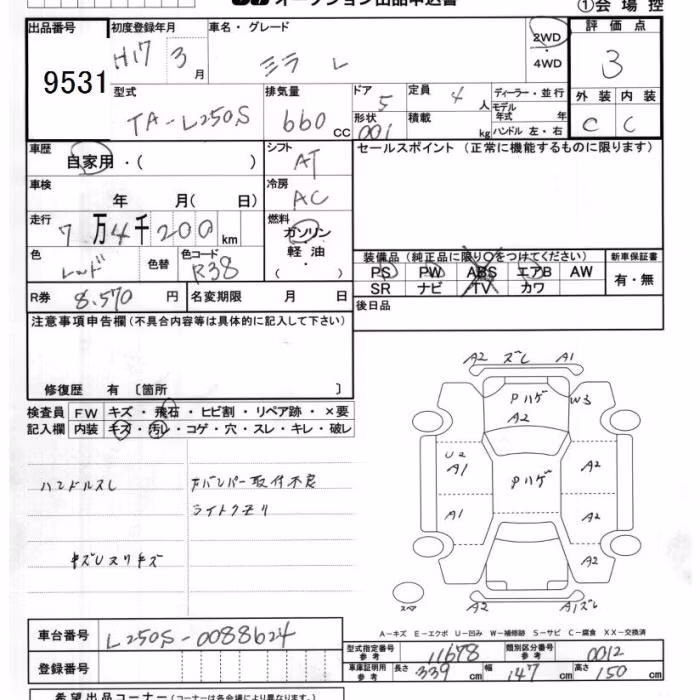 オークション出品申込書
①会場控
出品番号 9531
初度登録年月 H17 3月
車名・グレード ミラ L
2WD・4WD
評価点 3
型式 TA-L250S
排気量 660cc
ドア 5
形状 001
定員 4人
積載 kg
ディーラー・並行
モデル年式 年
ハンドル 左・右
外装 C
内装 C
車歴 自家用・( )
シフト AT
セールスポイント (正常に機能するものに限ります)
車検 年 月( 日)
冷房 AC
走行 7万4千200km
燃料 ガソリン 軽油・( )
色 レッド 色替
色コード R38
装備品(純正品に限り○をつけてください)
新車保証書
PS PW ABS エアB AW
SR ナビ TV カワ
有・無
R券 8,570円
名変期限 月 日
後日品
注意事項申告欄(不具合内容等は具体的に記入して下さい)
修復歴 有 〔箇所 〕
検査員 FW キズ・飛石・ヒビ割・リペア跡・×要
記入欄 内装 キズ・汚レ・コゲ・穴・スレ・キレ・破レ
ハンドルスレ
バンパー取付不良
ライトクモリ
A2 ズレ A1
Pハゲ
A2
W3
U2
A1
Pハゲ
A2
A1
A2
A2
A2
A1ズレ
A-キズ E-エクボ U-凹み W-補修跡 S-サビ C-腐食 XX-交換済
車台番号 L250S-0088624
型式指定番号 参考 11678
類別区分番号 参考 0012
登録番号
車庫証明用 参考 長さ 339cm 幅 147cm 高さ 150cm
希望出品コーナー(コーナー名は各会場により異なります。)